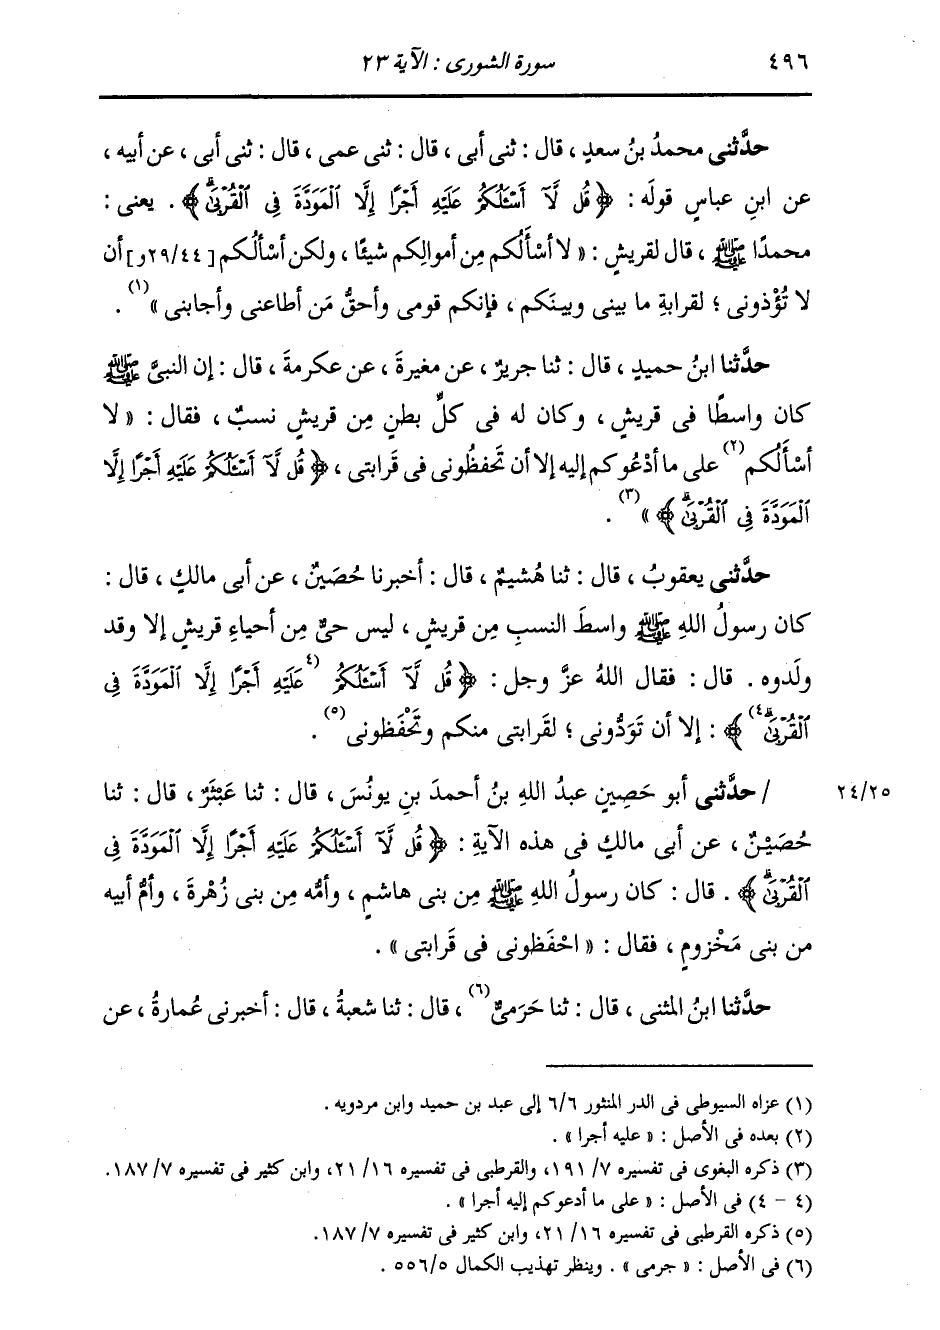 ٤٩٦ سورة الشورى : الآية ٢٣
حدَّثنى محمدُ بنُ سعدٍ ، قال : ثنى أبى ، قال : ثنى عمى ، قال : ثنى أبى ، عن أبيه ،
عن ابنِ عباسٍ قولَه : ﴿ قُل لَّآ أَسْـَٔلُكُمْ عَلَيْهِ أَجْرًا إِلَّا ٱلْمَوَدَّةَ فِى ٱلْقُرْبَىٰۗ ﴾ . يعنى :
محمدًا ﷺ ، قال لقريشٍ : « لا أسْأَلُكم مِن أموالِكم شيئًا ، ولكن أسْألُكم [٢٩/٤٤و] أن
لا تُؤْذونى ؛ لقرابةِ ما بينى وبينَكم ، فإنكم قومى وأحقُّ مَن أطاعنى وأجابنى »(١) .
حدَّثنا ابنُ حميدٍ ، قال : ثنا جريرٌ ، عن مغيرةَ ، عن عكرمةَ ، قال : إن النبىَّ ﷺ
كان واسطًا فى قريشٍ ، وكان له فى كلِّ بطنٍ مِن قريشٍ نسبٌ ، فقال : « لا
أسْأَلُكم(٢) على ما أدْعُوكم إليه إلا أن تَحفظُونى فى قَرابتى ، ﴿ قُل لَّآ أَسْـَٔلُكُمْ عَلَيْهِ أَجْرًا إِلَّا
ٱلْمَوَدَّةَ فِى ٱلْقُرْبَىٰۗ ﴾ »(٣) .
حدَّثنى يعقوبُ ، قال : ثنا هُشيمٌ ، قال : أخبرنا حُصَينٌ ، عن أبى مالكٍ ، قال :
كان رسولُ اللهِ ﷺ واسطَ النسبِ مِن قريشٍ ، ليس حىٌّ مِن أحياءِ قريشٍ إلا وقد
ولَدوه . قال : فقال اللهُ عزَّ وجل : ﴿ قُل لَّآ أَسْـَٔلُكُمْ (٤عَلَيْهِ أَجْرًا إِلَّا ٱلْمَوَدَّةَ فِى
ٱلْقُرْبَىٰۗ٤) ﴾ : إلا أن تَوَدُّونى ؛ لقَرابتى منكم وتَحْفَظونى(٥) .
/ حدَّثنى أبو حَصِينٍ عبدُ اللهِ بنُ أحمدَ بنِ يونُسَ ، قال : ثنا عَبْثَرٌ ، قال : ثنا ٢٤/٢٥
حُصَيْنٌ ، عن أبى مالكٍ فى هذه الآيةِ : ﴿ قُل لَّآ أَسْـَٔلُكُمْ عَلَيْهِ أَجْرًا إِلَّا ٱلْمَوَدَّةَ فِى
ٱلْقُرْبَىٰۗ ﴾ . قال : كان رسولُ اللهِ ﷺ مِن بنى هاشمٍ ، وأمُّه مِن بنى زُهْرةَ ، وأمُّ أبيه
من بنى مَخْزومٍ ، فقال : « احْفَظونى فى قَرابتى » .
حدَّثنا ابنُ المثنى ، قال : ثنا حَرَمىٌّ(٦) ، قال : ثنا شعبةُ ، قال : أخبرنى عُمارةُ ، عن
(١) عزاه السيوطى فى الدر المنثور ٦/٦ إلى عبد بن حميد وابن مردويه .
(٢) بعده فى الأصل : « عليه أجرا » .
(٣) ذكره البغوى فى تفسيره ٧/ ١٩١، والقرطبى فى تفسيره ١٦/ ٢١، وابن كثير فى تفسيره ٧/ ١٨٧.
(٤ - ٤) فى الأصل : « على ما أدعوكم إليه أجرا » .
(٥) ذكره القرطبى فى تفسيره ١٦/ ٢١، وابن كثير فى تفسيره ٧/ ١٨٧.
(٦) فى الأصل : « جرمى » . وينظر تهذيب الكمال ٥٥٦/٥ .